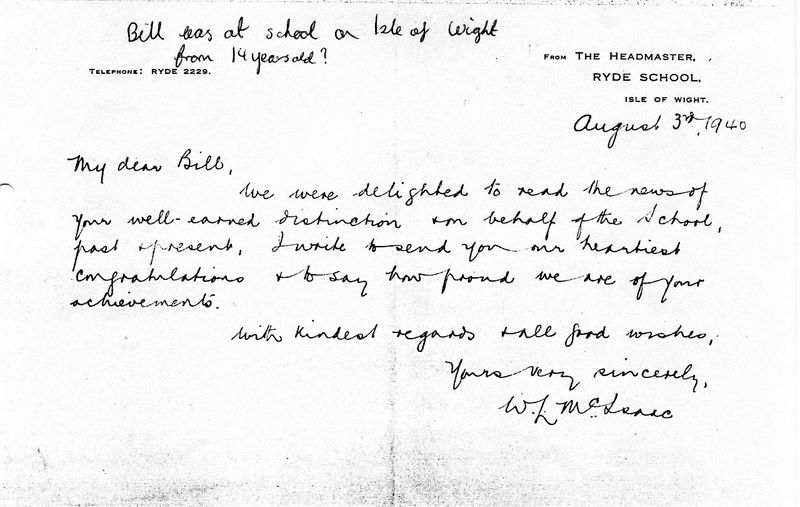 Bill was at school on Isle of Wight
from 14 years old?
TELEPHONE: RYDE 2229.
FROM THE HEADMASTER,
RYDE SCHOOL,
ISLE OF WIGHT.
August 3rd, 1940
My dear Bill,
We were delighted to read the news of
your well-earned distinction & on behalf of the School,
past & present, I write to send you our heartiest
congratulations & to say how proud we are of your
achievements.
With kindest regards & all good wishes,
Yours very sincerely,
W.L. McIsaac